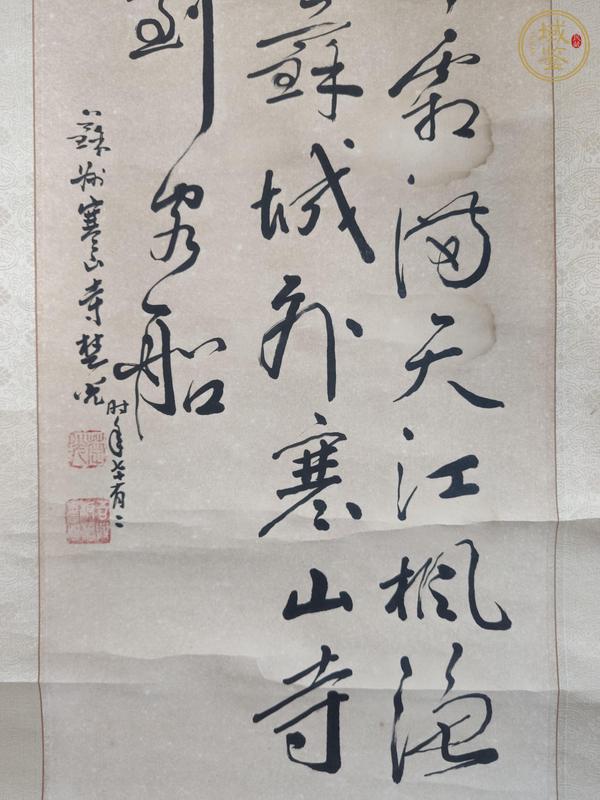 霜满天江枫渔
蘇城外寒山寺
到客船
蘇州寒山寺楚光
时年七十有二
域鉴